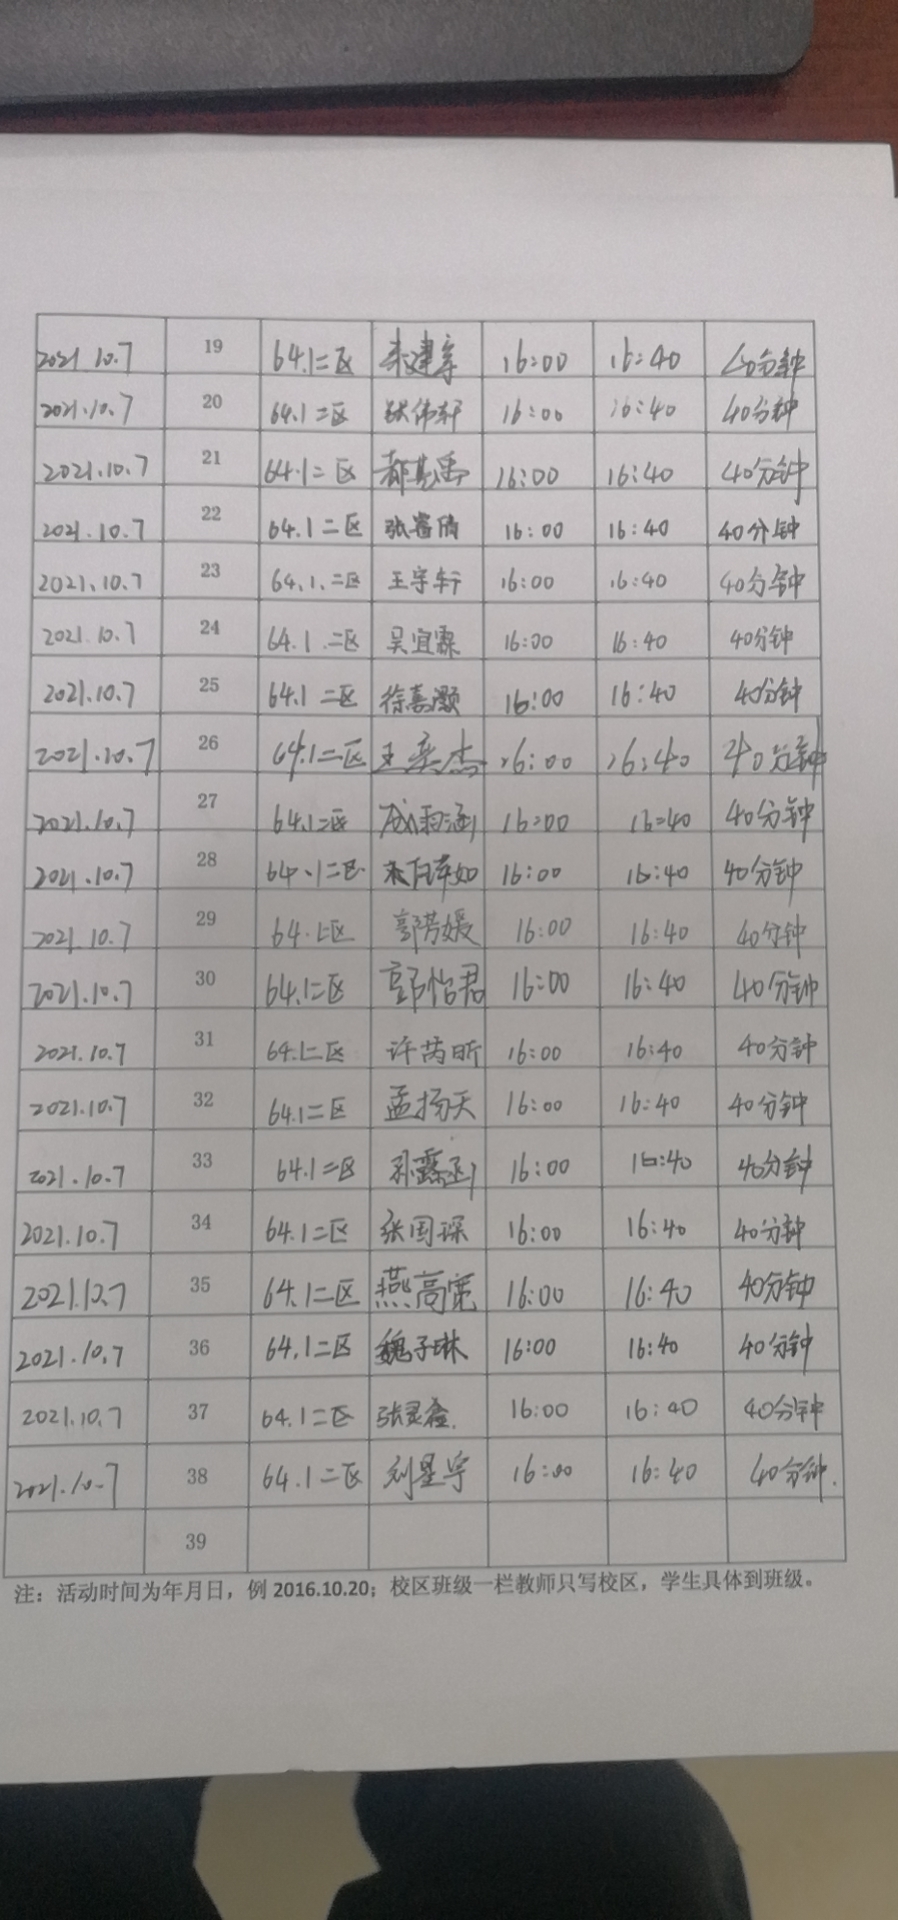 2021 10.7 19 64.1二区 16:00 16:40 40分钟
2021.10.7 20 64.1二区 张伟轩 16:00 16:40 40分钟
2021.10.7 21 64.1二区 16:00 16:40 40分钟
2021.10.7 22 64.1二区 张睿倩 16:00 16:40 40分钟
2021.10.7 23 64.1.二区 王宇轩 16:00 16:40 40分钟
2021.10.7 24 64.1.二区 吴宜霖 16:00 16:40 40分钟
2021.10.7 25 64.1 二区 徐嘉灏 16:00 16:40 40分钟
2021.10.7 26 64.1二区 王奕杰 16:00 16:40 40分钟
2021.10.7 27 64.1二区 16:00 16:40 40分钟
2021.10.7 28 64.1二区 16:00 16:40 40分钟
2021.10.7 29 64.1二区 郭芳媛 16:00 16:40 40分钟
2021.10.7 30 64.1二区 郭怡君 16:00 16:40 40分钟
2021.10.7 31 64.1二区 许芮昕 16:00 16:40 40分钟
2021.10.7 32 64.1二区 孟扬天 16:00 16:40 40分钟
2021.10.7 33 64.1二区 16:00 16:40 40分钟
2021.10.7 34 64.1二区 张国琛 16:00 16:40 40分钟
2021.10.7 35 64.1二区 燕高宽 16:00 16:40 40分钟
2021.10.7 36 64.1二区 魏子琳 16:00 16:40 40分钟
2021.10.7 37 64.1二区 张灵鑫. 16:00 16:40 40分钟
2021.10.7 38 64.1二区 刘星宇 16:00 16:40 40分钟.
39
注：活动时间为年月日，例 2016.10.20；校区班级一栏教师只写校区，学生具体到班级。